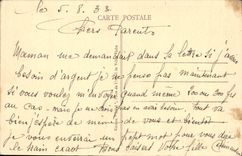 Le 5.8.33.
CARTE POSTALE
Chers Parents
Maman me demandait dans sa lettre si j'avais
besoin d'argent je ne pense pas maintenant
si vous voulez m'envoyer quand même
au cas mais je ne dois pas en avoir besoin. Tout va
bien j'espère de même de vous et bientôt
je vous enverrai un petit mot pour vous dire
le train exact Bons baisers Votre fille